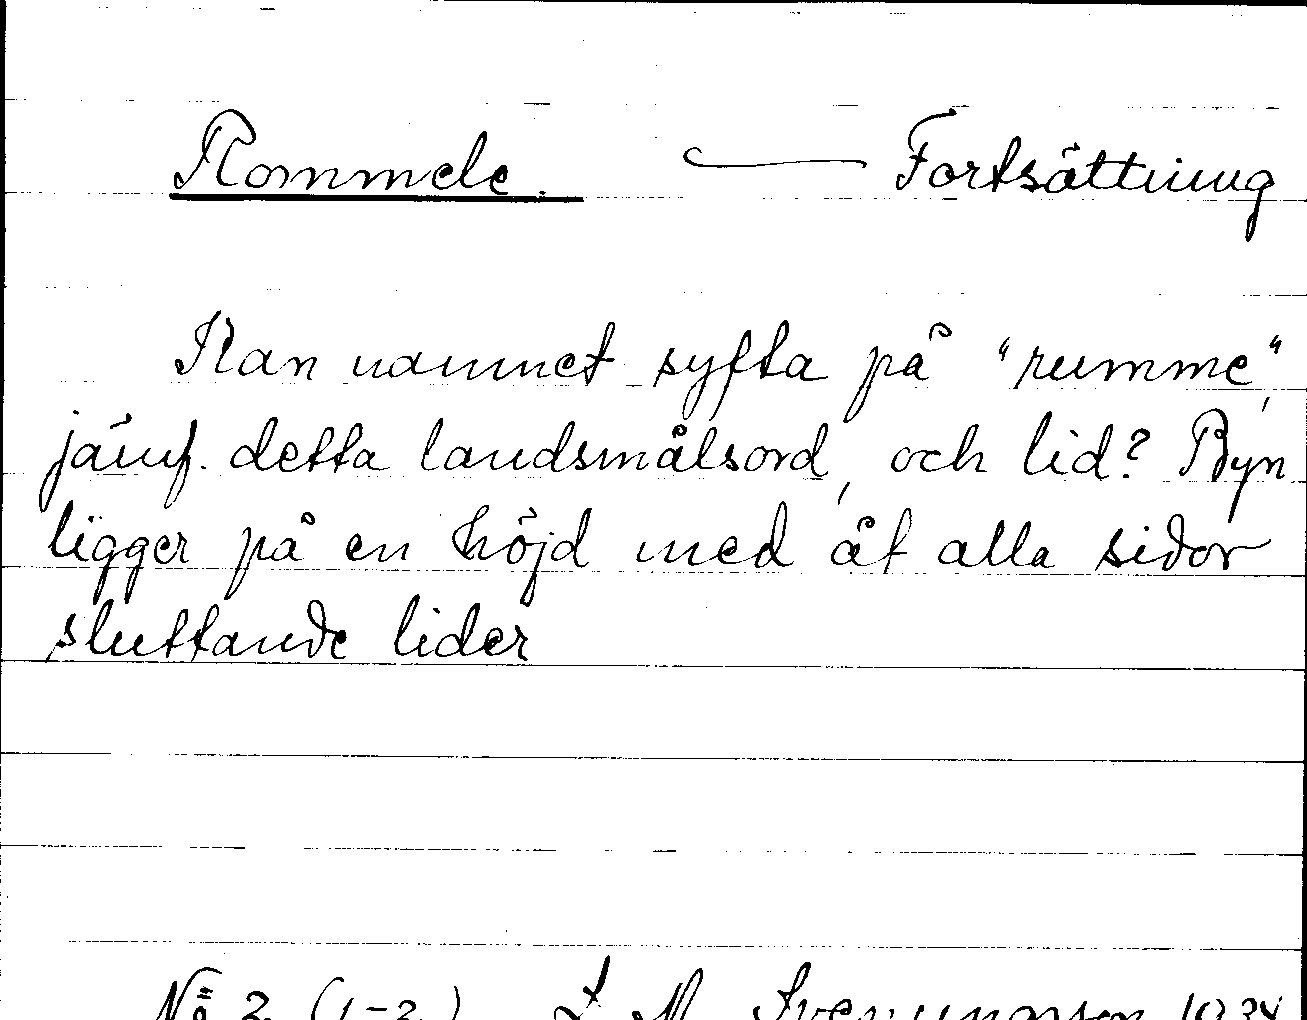 Rommele. — Fortsättning
Kan namnet syfta på "rumme",
jämf. detta landsmålsord, och lid? Byn
ligger på en höjd med åt alla sidor
sluttande lider
No 2 (1-2)